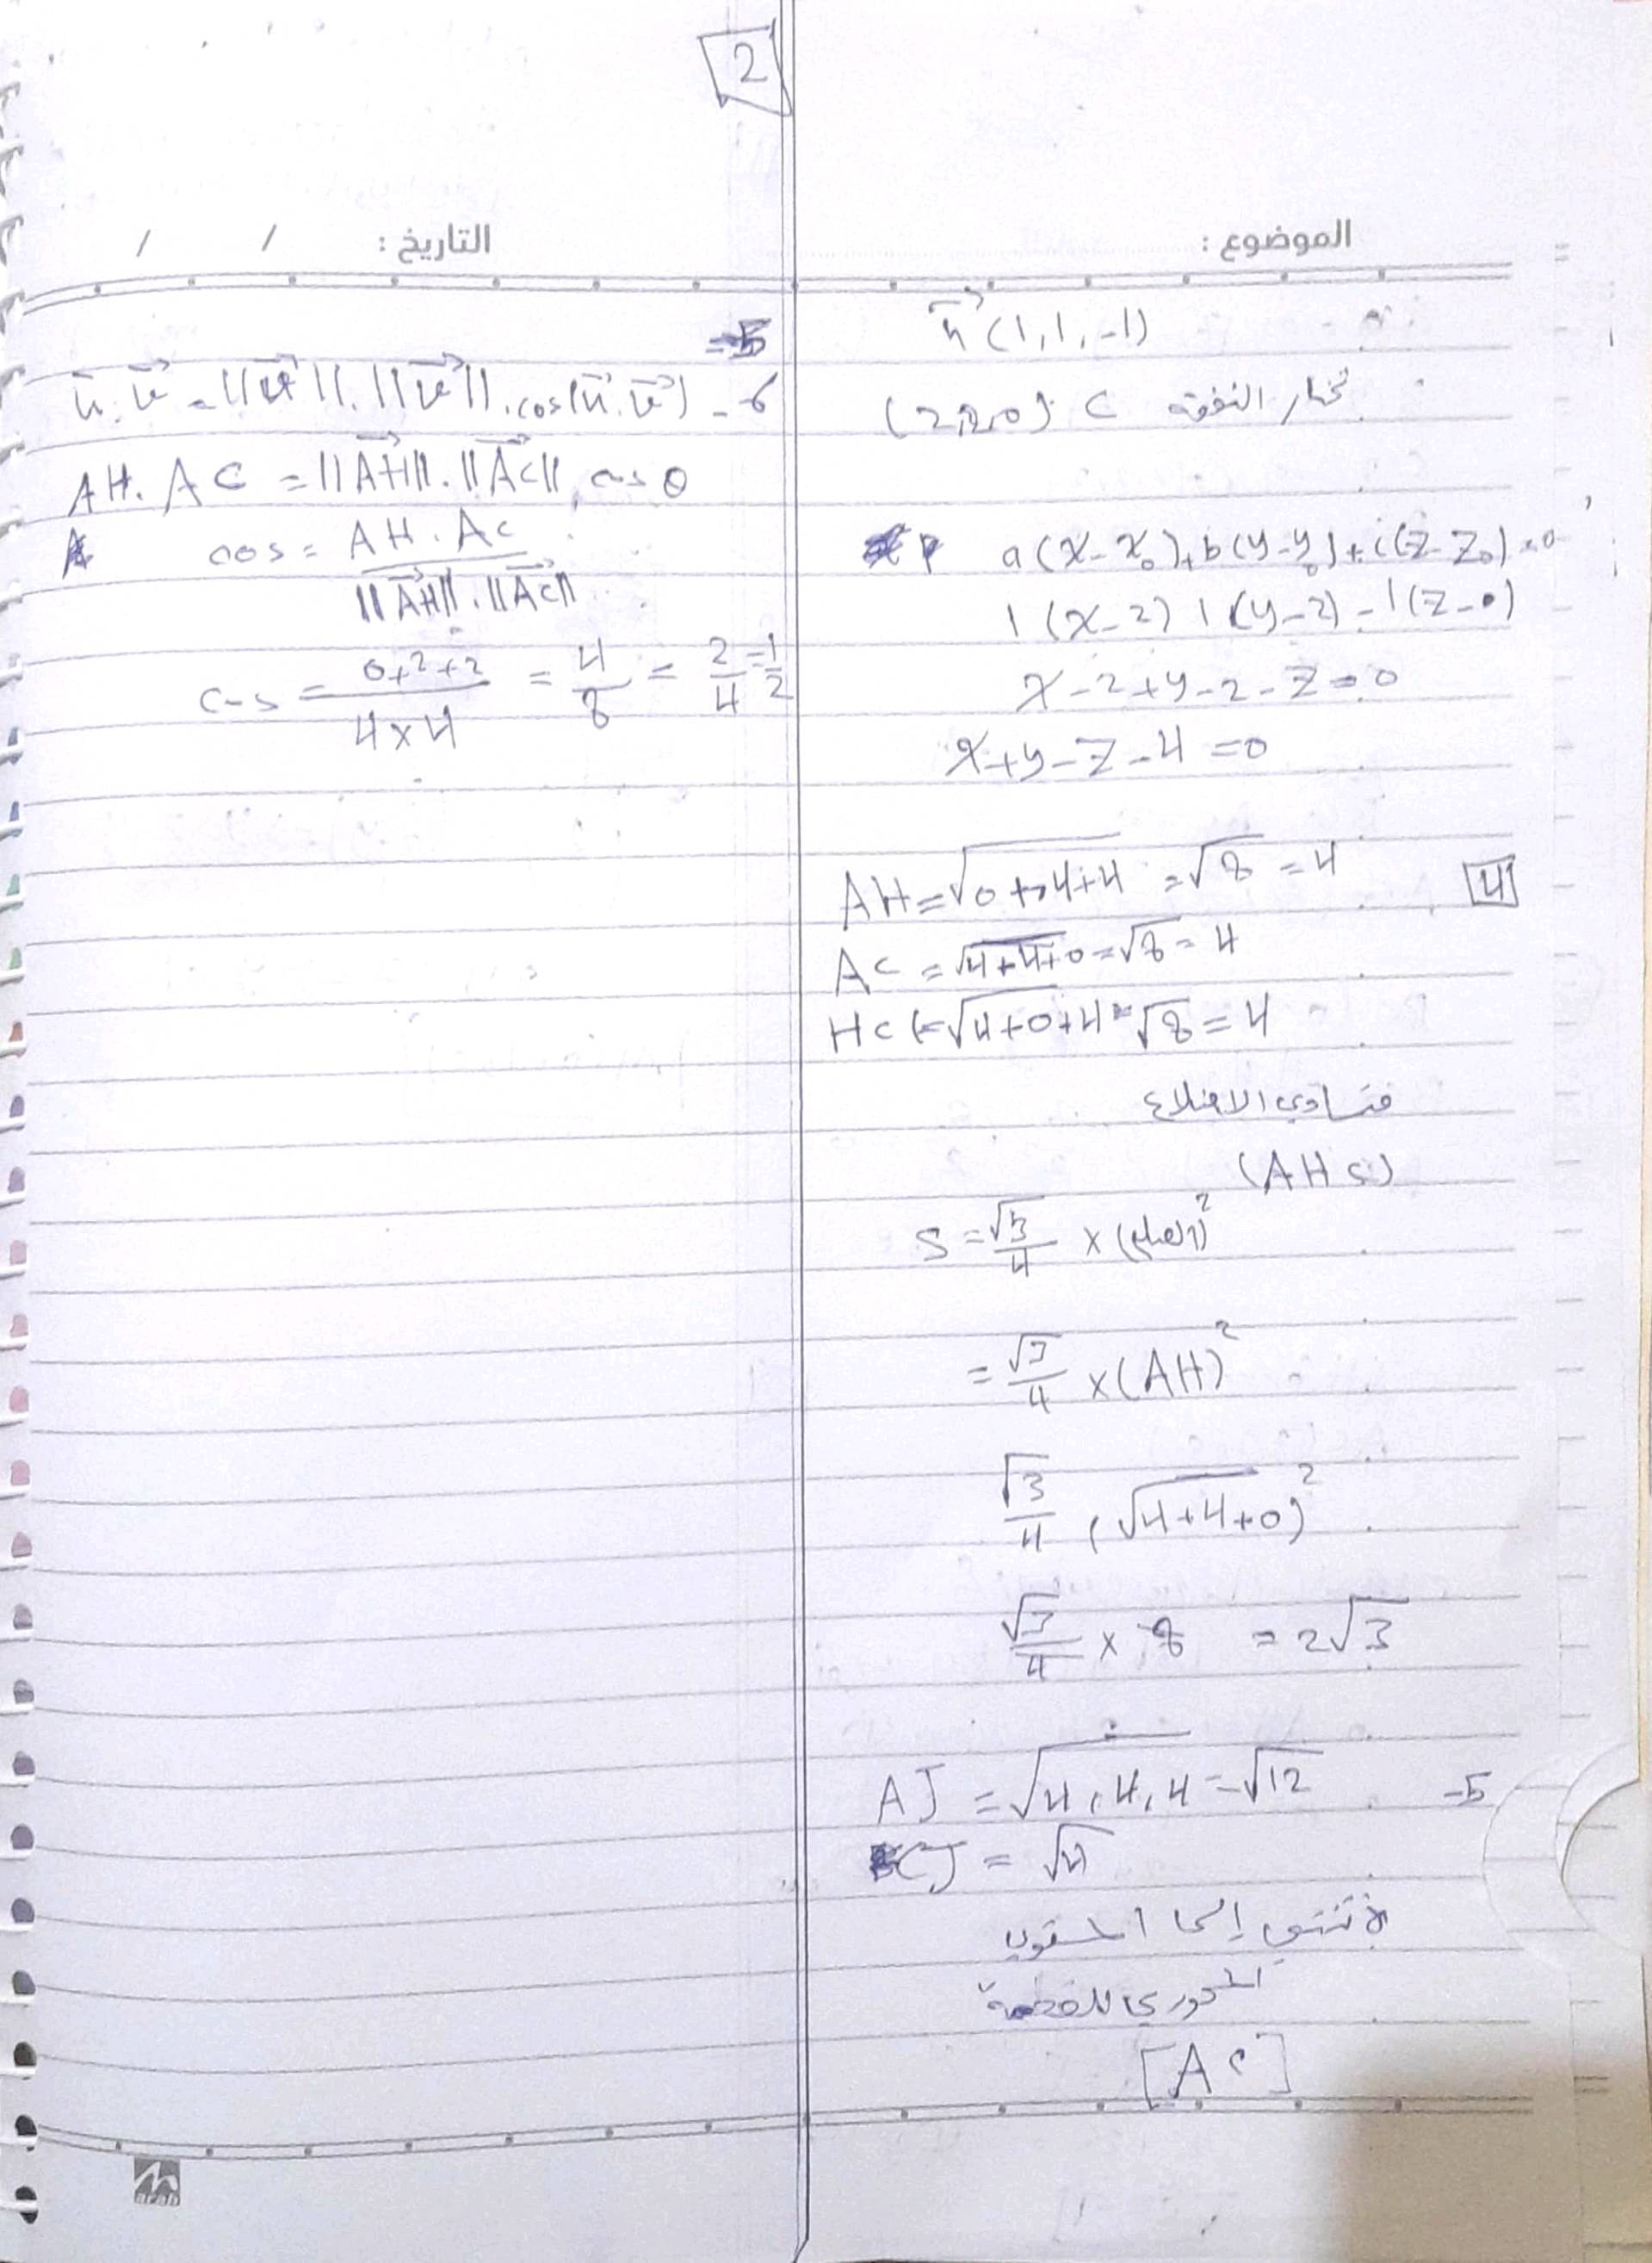 2
الموضوع :
n (1, 1, -1)
نختار النقطة C (2,2,0)
P a(x-x₀)+b(y-y₀)+c(z-z₀)=0
1(x-2) 1(y-2)-1(z-0)
x-2+y-2-z=0
x+y-z-4=0
4
AH=√0+4+4=√8=4
AC=√4+4+0=√8=4
HC=√4+0+4=√8=4
متساوي الاضلاع
(AHC)
S=√3/4 ×(الضلع)²
=√3/4 ×(AH)²
√3/4 (√4+4+0)²
√3/4 × 8 =2√3
5- AJ=√4,4,4=√12
CJ=√4
لا تنتمي إلى المستوي
المحوري للقطعة
[AC]
التاريخ : / /
=5
6- u.v=||u||.||v||.cos(u.v)
AH.AC=||AH||.||AC||.cos θ
cos=AH.AC/||AH||.||AC||
cos=0+2+2/4×4=4/8=2/4=1/2
arab